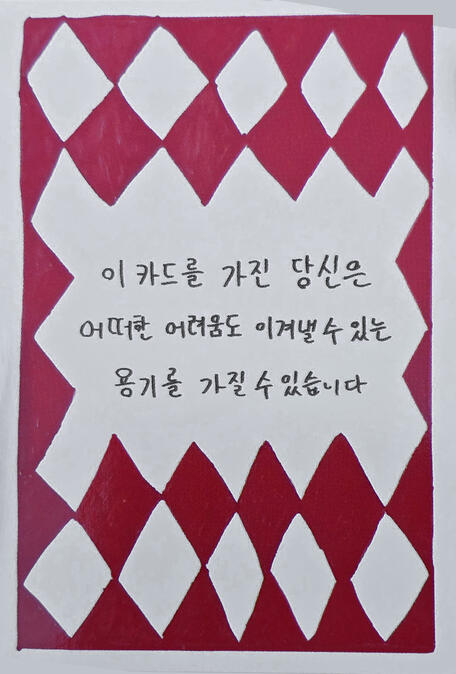 이 카드를 가진 당신은
어떠한 어려움도 이겨낼 수 있는
용기를 가질 수 있습니다